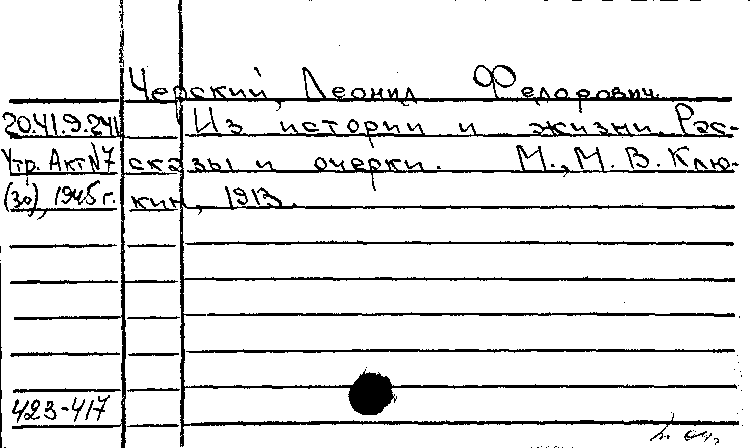 Черский, Леонид Федорович.
20.41.9.241 Из истории и жизни. Рас-
Утр. Акт N7 сказы и очерки. М., М. В. Клю-
(30), 1945 г. кин, 1913.
423-417